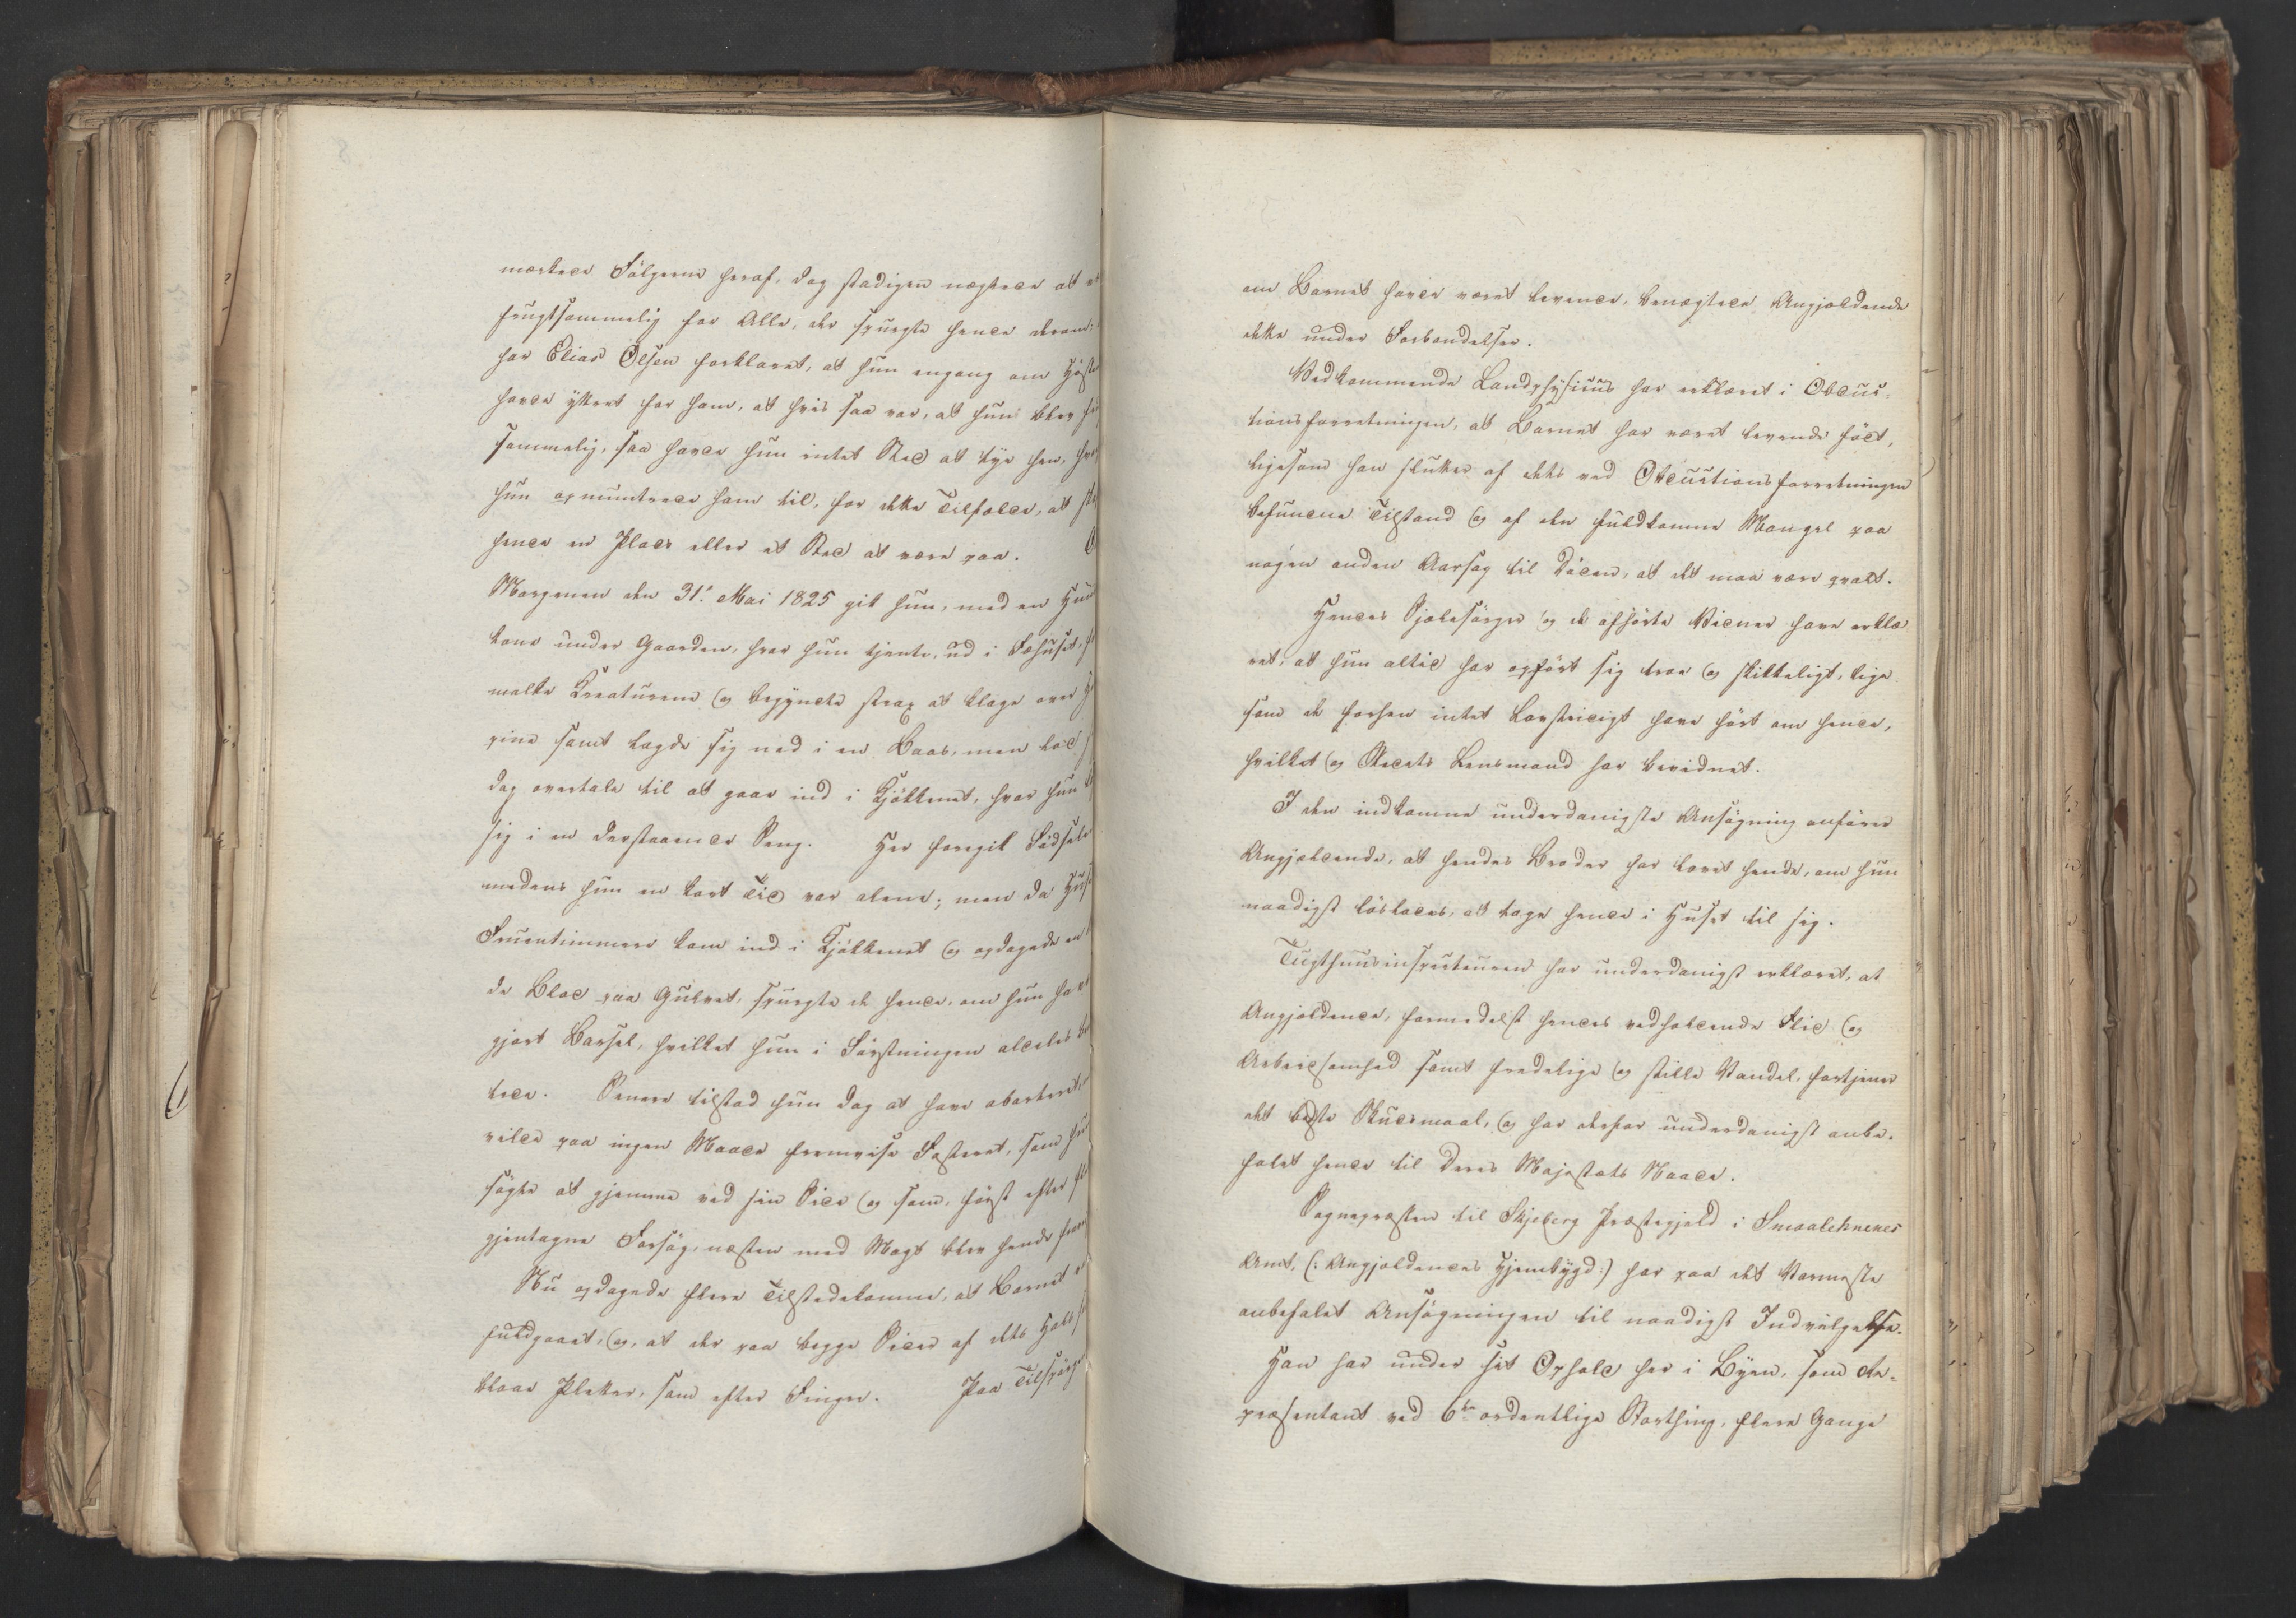 mærkede Følgerne heraf, dog stadigen nægtede at
frugtsommelig for Alle, der spurgte hende derom;
har Elias Olsen forklaret, at hun engang om Høste
havde yttret for ham, at hvis saa var, at hun blev
sommelig, saa havde hun intet Sted at tye hen,
hun opmuntrede ham til, for dette Tilfælde, at
hende en Plads eller et Sted at være paa.
Morgenen den 31. Mai 1825 gik hun, med en
kone under Gaarden, hvor hun tjente, ud i Fæhuset,
malke Kreaturene og begyndte strax at klage over
pine samt lagde sig ned i en Baas, men lod
dog overtale til at gaae ind i Kjøkkenet, hvor hun
sig i en derstaaende Seng. Her foregik Fødsele
medens hun en kort Tid var alene; men da
Fruentimmere kom ind i Kjøkkenet og opdagede en
de Blod paa Gulvet, spurgte de hende, om hun
gjort Barsel, hvilket hun i Førstningen aldeles
tede. Senere tilstod hun dog at have aborteret,
vilde paa ingen Maade fremvise Fosteret, som
søgte at gjemme ved sin Side og som, først efter
gjentagne Forsøg, næsten med Magt blev hende
Nu opdagede flere Tilstedekomne, at Barnet
fuldgaaet, og, at der paa begge Sider af dets Hals
blaae Pletter, som efter Fingre. Paa Tilspørg
om Barnet havde været levende, benægtede Angjældende
dette under Forbandelser.
Vedkommende Landphysicus har erklæret i Obduc-
tionsforretningen, at Barnet har været levende født,
ligesom han slutter af dets ved Obductionsforretningen
befundne Tilstand og af den fuldkomne Mangel paa
nogen anden Aarsag til Døden, at det maa være qvalt.
Hendes Sjelesørger og de afhørte Vidner have erklæ
ret, at hun altid har opført sig troe og skikkeligt, lige
som de forhen intet Lovstridigt have hørt om hende,
hvilket og Stedets Lensmand har bevidnet.
I den indkomne underdanigste Ansøgning anfører
Angjældende, at hendes Broder har lovet hende, om hun
naadigst løslades, at tage hende i Huset til sig.
Tugthuusinspecteuren har underdanigst erklæret, at
Angjældende, formedelst hendes vedholdende Flid og
Arbeidsomhed samt fredelige og stille Vandel, fortjener
det bedste Skudsmaal, og har derfor underdanigst anbe-
falet hende til Deres Majestæts Naade.
Sognepræsten til Skjeberg Præstegjeld i Smaalehnenes
Amt, (: Angjældendes Hjembygd :) har paa det Varmeste
anbefalet Ansøgningen til naadigst Indvilgelse.
Han har under sit Ophold her i Byen, som Re-
præsentant ved 6te ordentlige Storthing, flere Gange